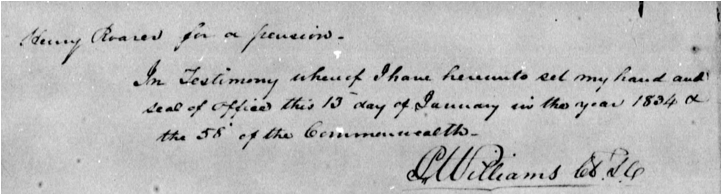 Henry Roarer for a pension.
In Testimony whereof I have hereunto set my hand and
seal of office this 13 day of January in the year 1834 &
the 58 of the Commonwealth.
Williams